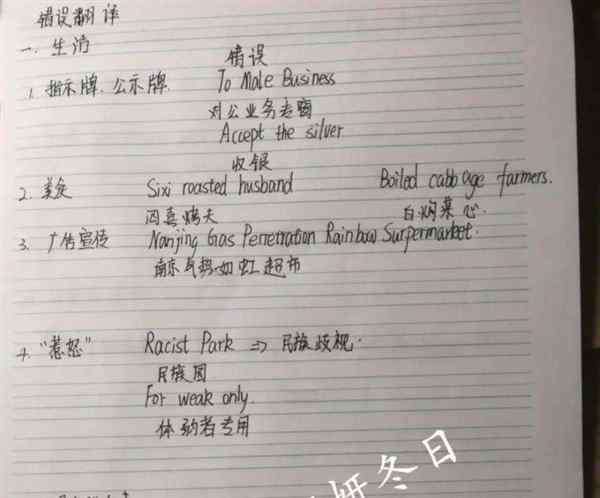 错误翻译
一、生活
错误
1. 指示牌、公示牌. To Male Business
对公业务专窗
Accept the silver
收银
2. 美食 Sixi roasted husband Boiled cabbage farmers.
四喜烤夫 白焖菜心.
3. 广告宣传 Nanjing Gas Penetration Rainbow Surpermarket.
南京气势如虹超市
4. “惹怒” Racist Park => 民族歧视.
民族园
For weak only.
体弱者专用
妍冬日